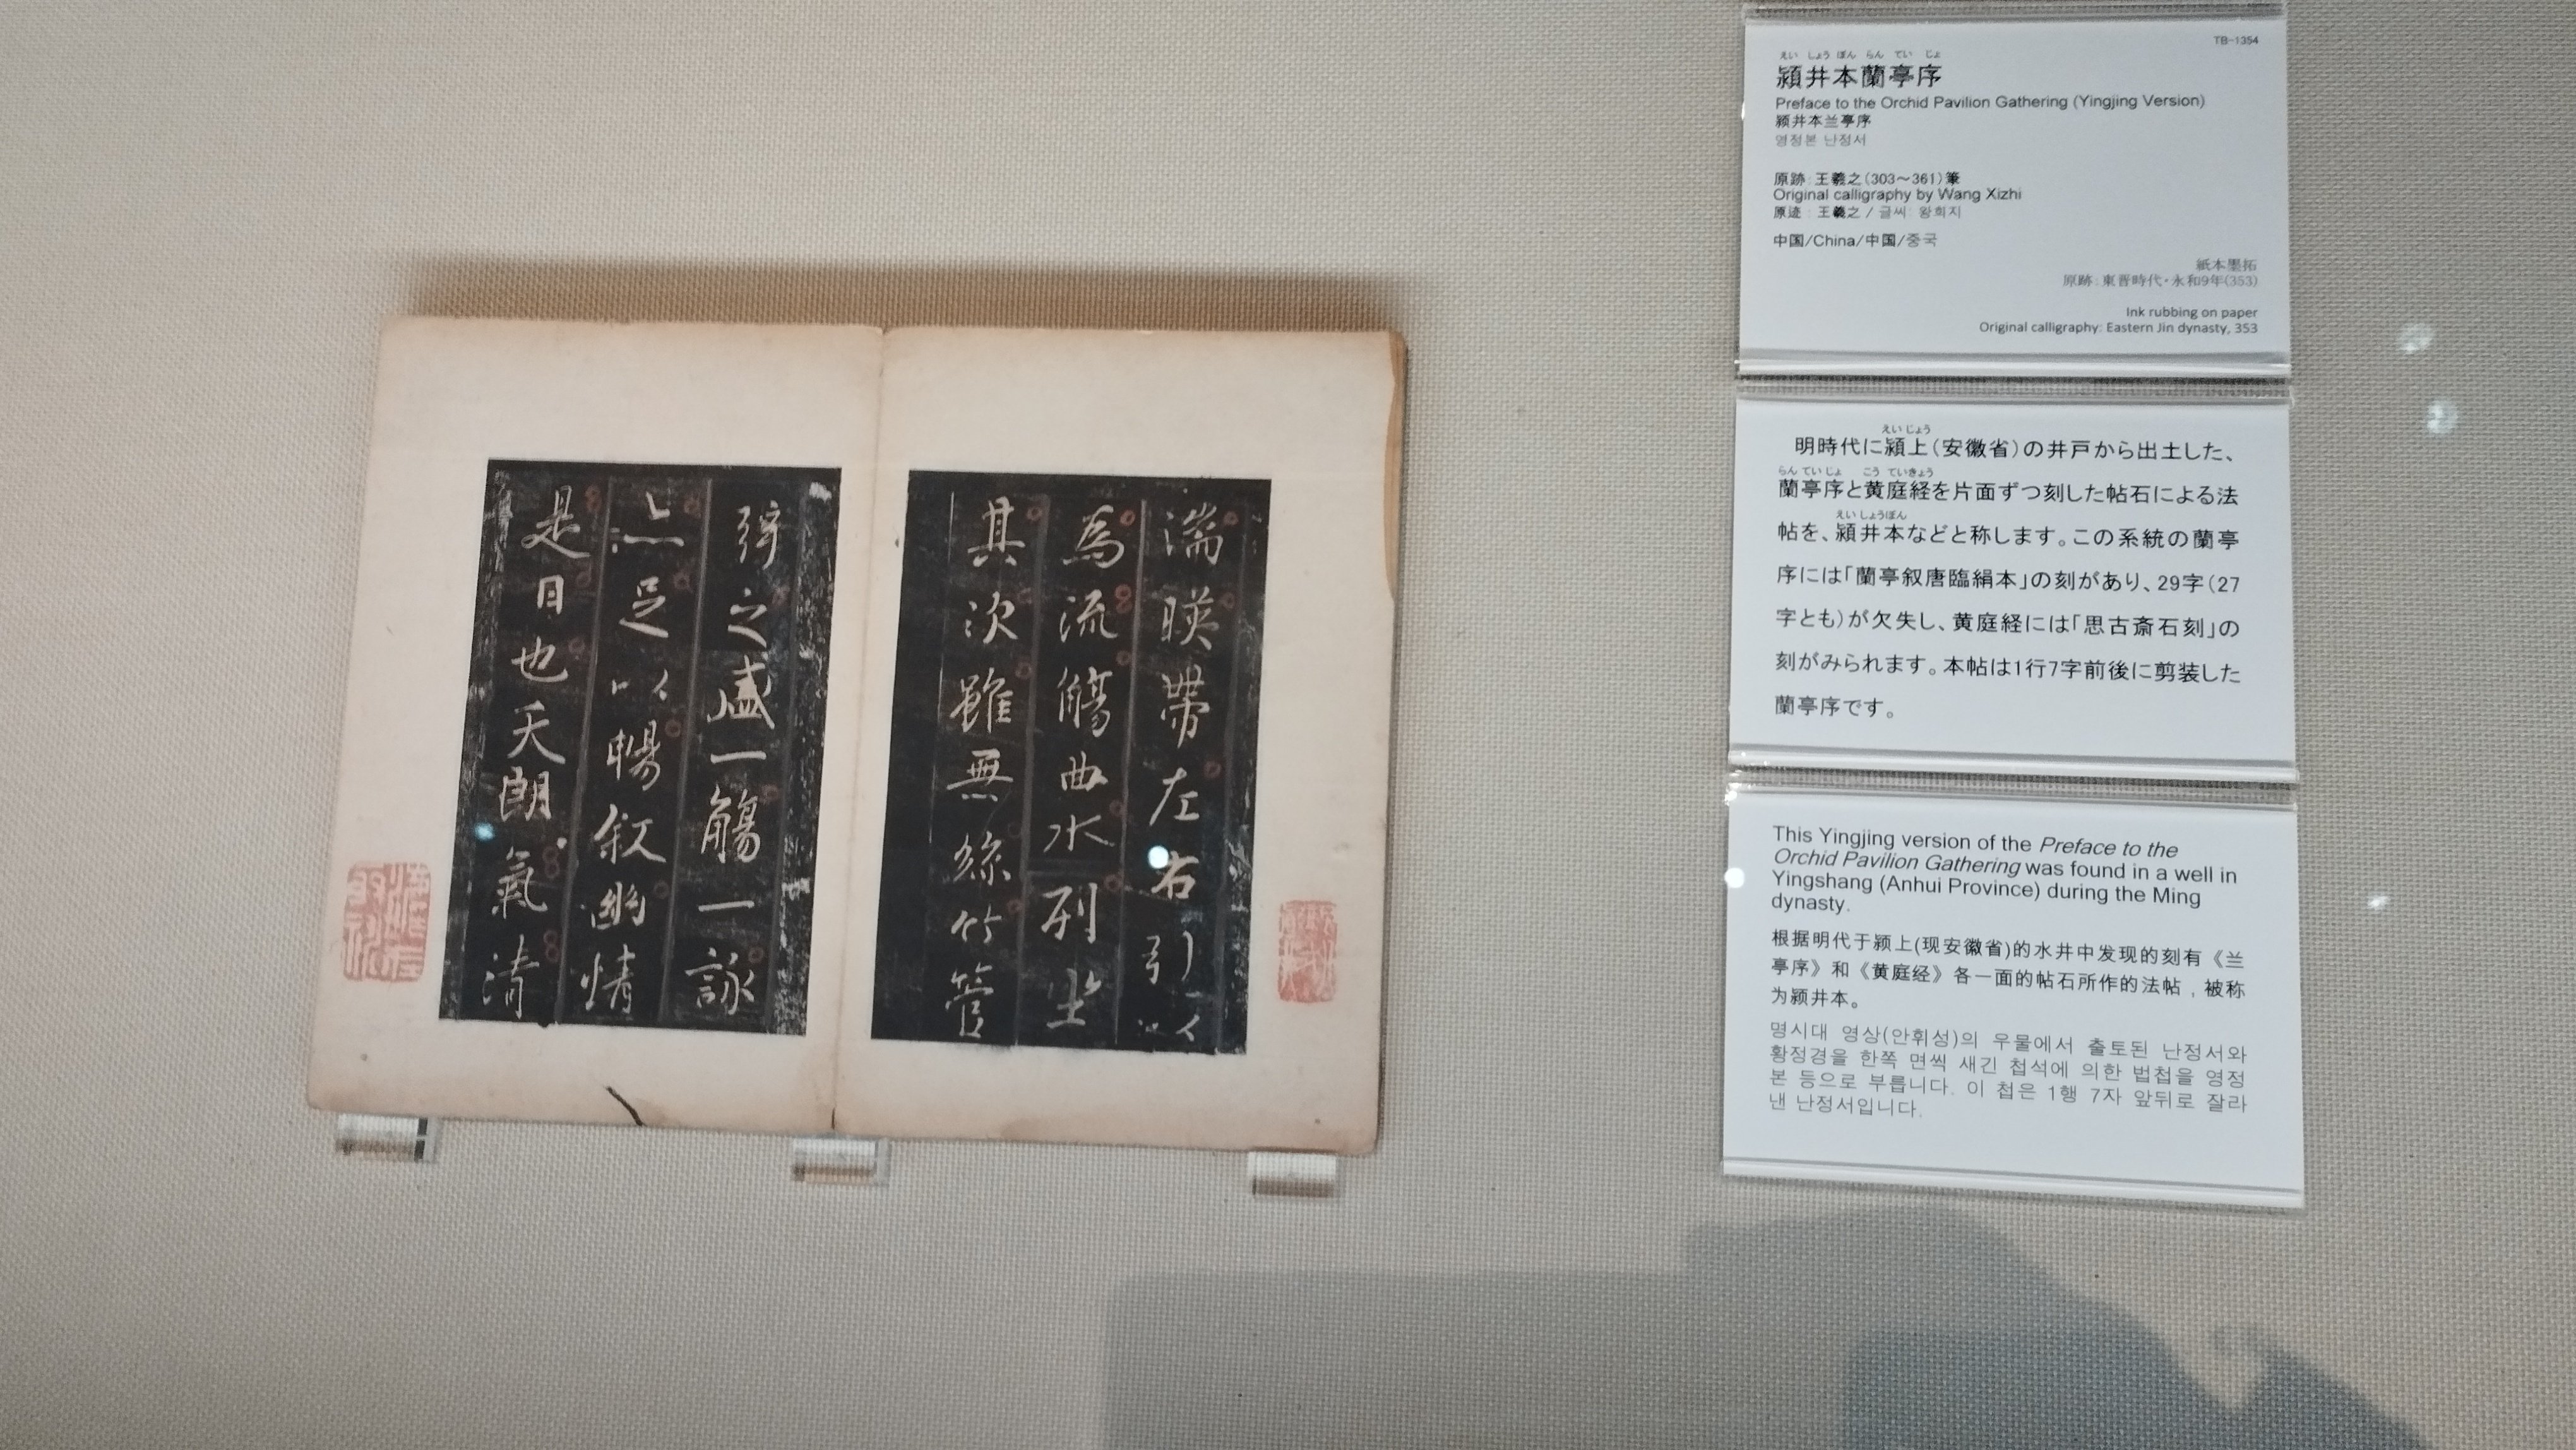 湍暎帶左右引以
為流觴曲水列坐
其次雖無絲竹管
弦之盛一觴一詠
亦足以暢叙幽情
是日也天朗氣清
TB-1354
えい しょう ぼん らん てい じょ
潁井本蘭亭序
Preface to the Orchid Pavilion Gathering (Yingjing Version)
颍井本兰亭序
영정본 난정서
原跡：王羲之（303～361）筆
Original calligraphy by Wang Xizhi
原迹：王羲之 / 글씨: 왕희지
中国/China/中国/중국
紙本墨拓
原跡：東晋時代・永和9年(353)
Ink rubbing on paper
Original calligraphy: Eastern Jin dynasty, 353
えいじょう
明時代に潁上（安徽省）の井戸から出土した、
らんていじょ こうていきょう
蘭亭序と黄庭経を片面ずつ刻した帖石による法
えいしょうぼん
帖を、潁井本などと称します。この系統の蘭亭
序には「蘭亭叙唐臨絹本」の刻があり、29字（27
字とも）が欠失し、黄庭経には「思古斎石刻」の
刻がみられます。本帖は1行7字前後に剪装した
蘭亭序です。
This Yingjing version of the Preface to the
Orchid Pavilion Gathering was found in a well in
Yingshang (Anhui Province) during the Ming
dynasty.
根据明代于颍上(现安徽省)的水井中发现的刻有《兰
亭序》和《黄庭经》各一面的帖石所作的法帖，被称
为颍井本。
명시대 영상(안휘성)의 우물에서 출토된 난정서와
황정경을 한쪽 면씩 새긴 첩석에 의한 법첩을 영정
본 등으로 부릅니다. 이 첩은 1행 7자 앞뒤로 잘라
낸 난정서입니다.